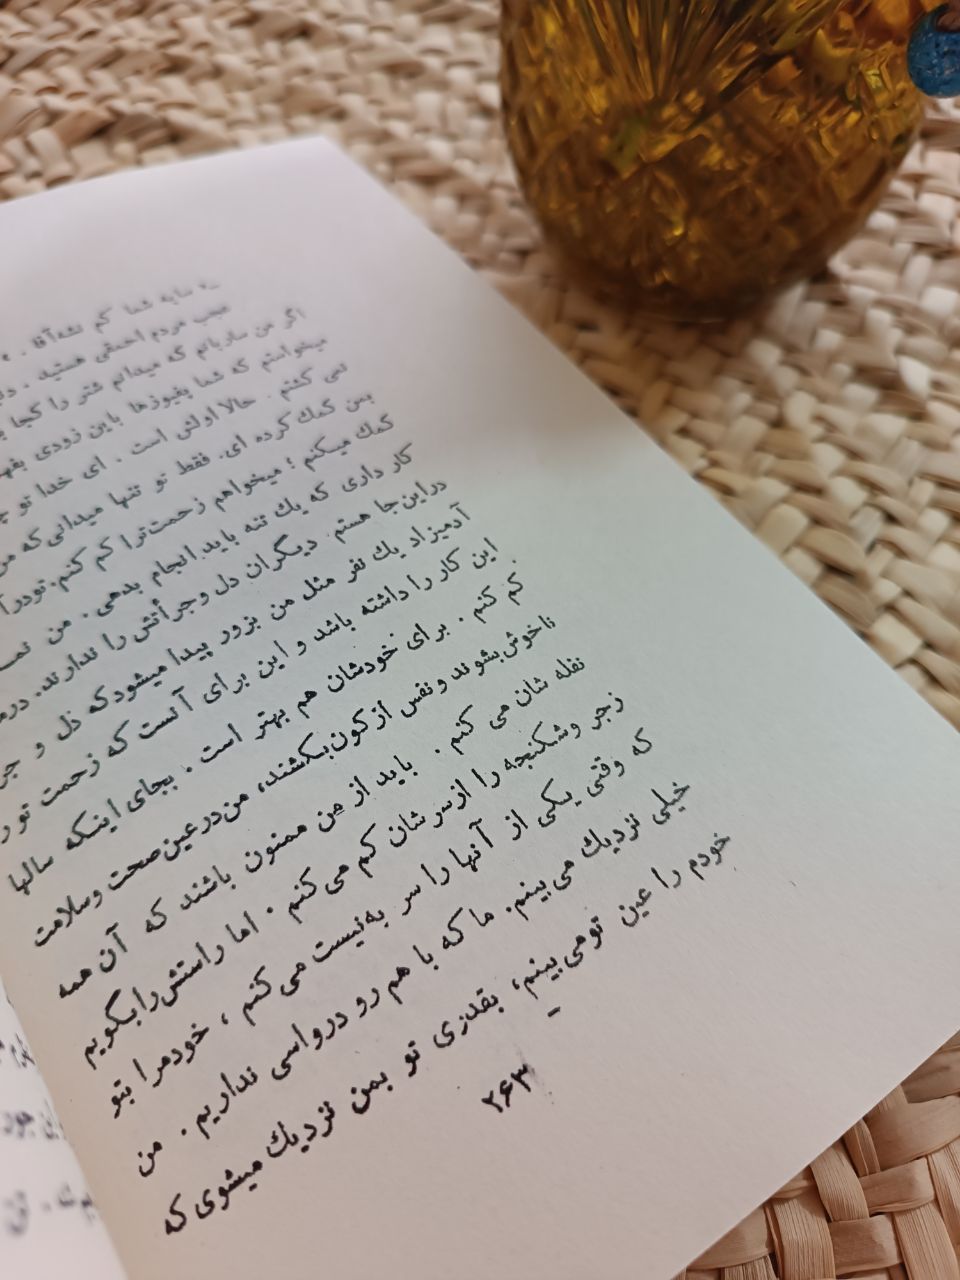 سایه شما کم نشه آقا .
عجب مردم احمقی هستید .
اگر من ساربانم که میدانم شتر را کجا
میخواستم که شما پفیوزها باین زودی
نمی کشتم . حالا اولش است . ای خدا تو
بمن کمك کرده ای. فقط تو تنها میدانی که من
کمك میکنم ؛ میخواهم زحمت ترا کم کنم. تو
کار داری که یك تنه باید انجام بدهی . من
دراین جا هستم. دیگران دل وجرأتش را ندارند.
آدمیزاد یك نفر مثل من بزور پیدا میشود که دل و
این کار را داشته باشد و این برای آنست که زحمت تو
کم کنم . برای خودشان هم بهتر است . بجای اینکه سالها
ناخوش بشوند ونفس از کون بکشند، من درعین صحت وسلامت
نفله شان می کنم . باید از من ممنون باشند که آن همه
زجر وشکنجه را ازسر شان کم می کنم . اما راستش رابگویم
که وقتی یکی از آنها را سر به نیست می کنم ، خودمرا بتو
خیلی نزدیك می بینم. ما که با هم رو درواسی نداریم . من
خودم را عین تومی بینم، بقدری تو بمن نزدیك میشوی که
۲۶۳